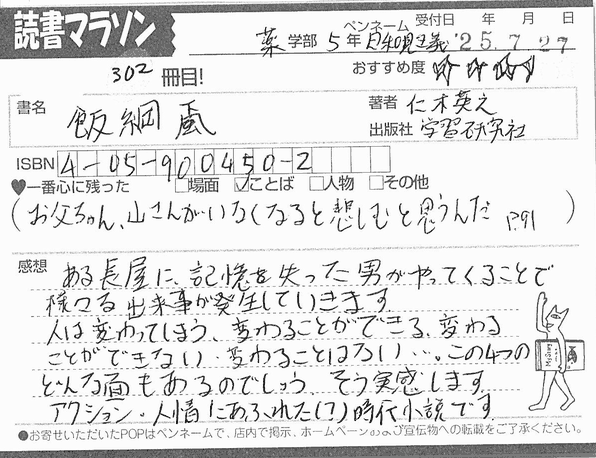 読書マラソン
ペンネーム 受付日 年 月 日
薬学部 5年 日和現主義 '25.7.27
302冊目! おすすめ度 ☆☆☆☆☆
書名 飯綱颪 著者 仁木英之
出版社 学習研究社
ISBN 4-05-900450-2
♥一番心に残った □場面 ☑ことば □人物 □その他
(お父ちゃん、山さんがいなくなると悲しむと思うんだ P.91)
感想 ある長屋に、記憶を失った男がやってくることで
様々な出来事が発生していきます
人は変わってしまう、変わることができる、変わる
ことができない、変わることはない…。この4つの
どんな面もあるのでしょう、そう実感します
アクション・人情にあふれた(?)時代小説です
●お寄せいただいたPOPはペンネームで、店内で掲示、ホームページおよび宣伝物への転載をご了承ください。